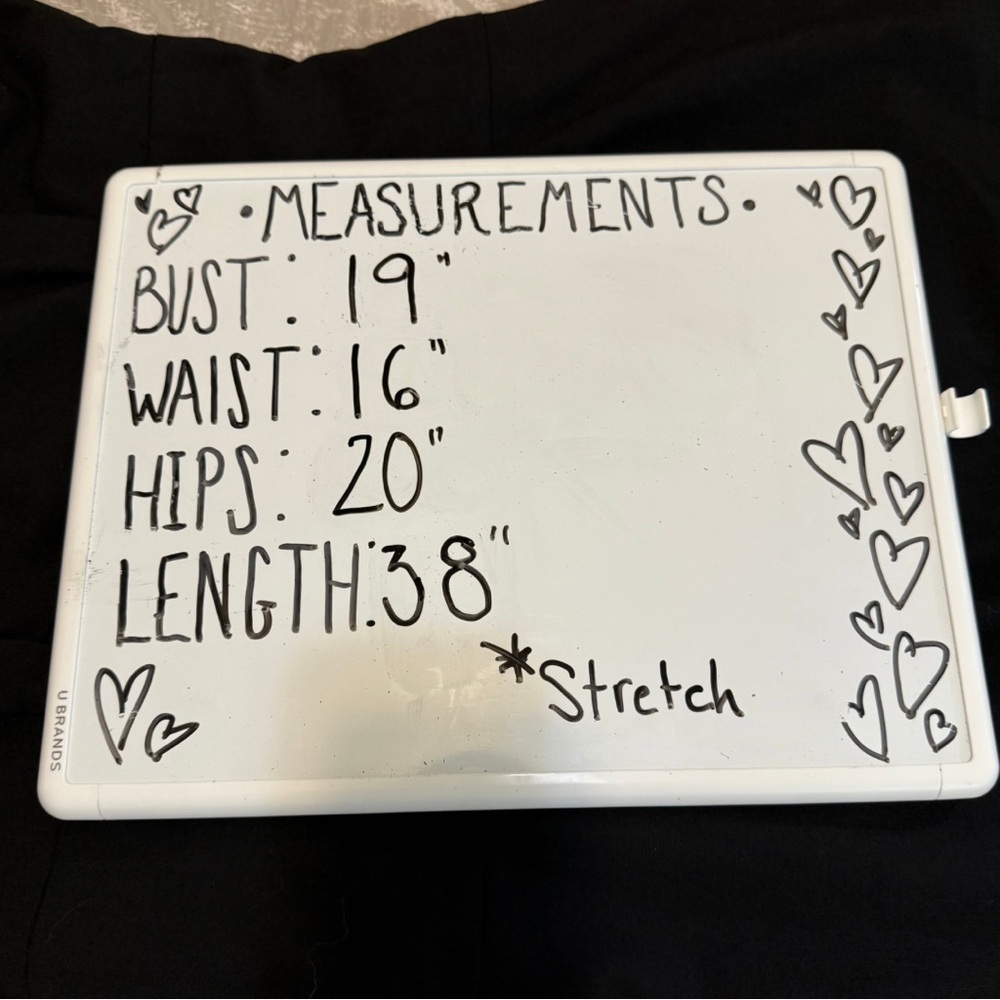 •MEASUREMENTS•
BUST: 19"
WAIST: 16"
HIPS: 20"
LENGTH:38"
*Stretch
U BRANDS